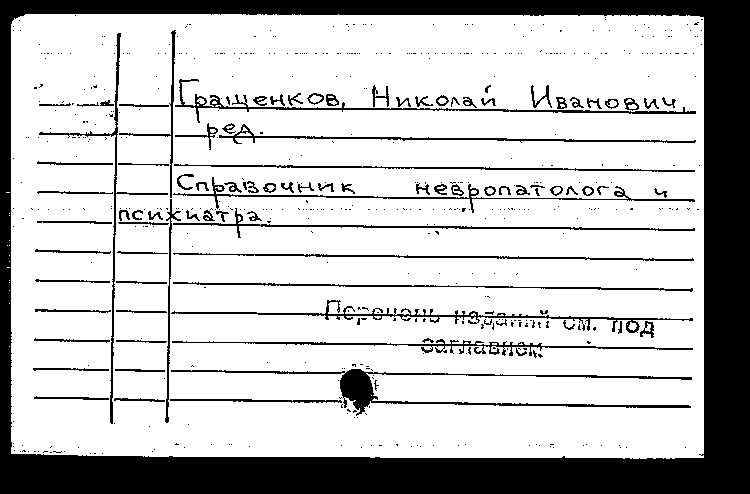 Гращенков, Николай Иванович,
ред.
Справочник невропатолога и
психиатра.
Перечень изданий см. под
заглавием